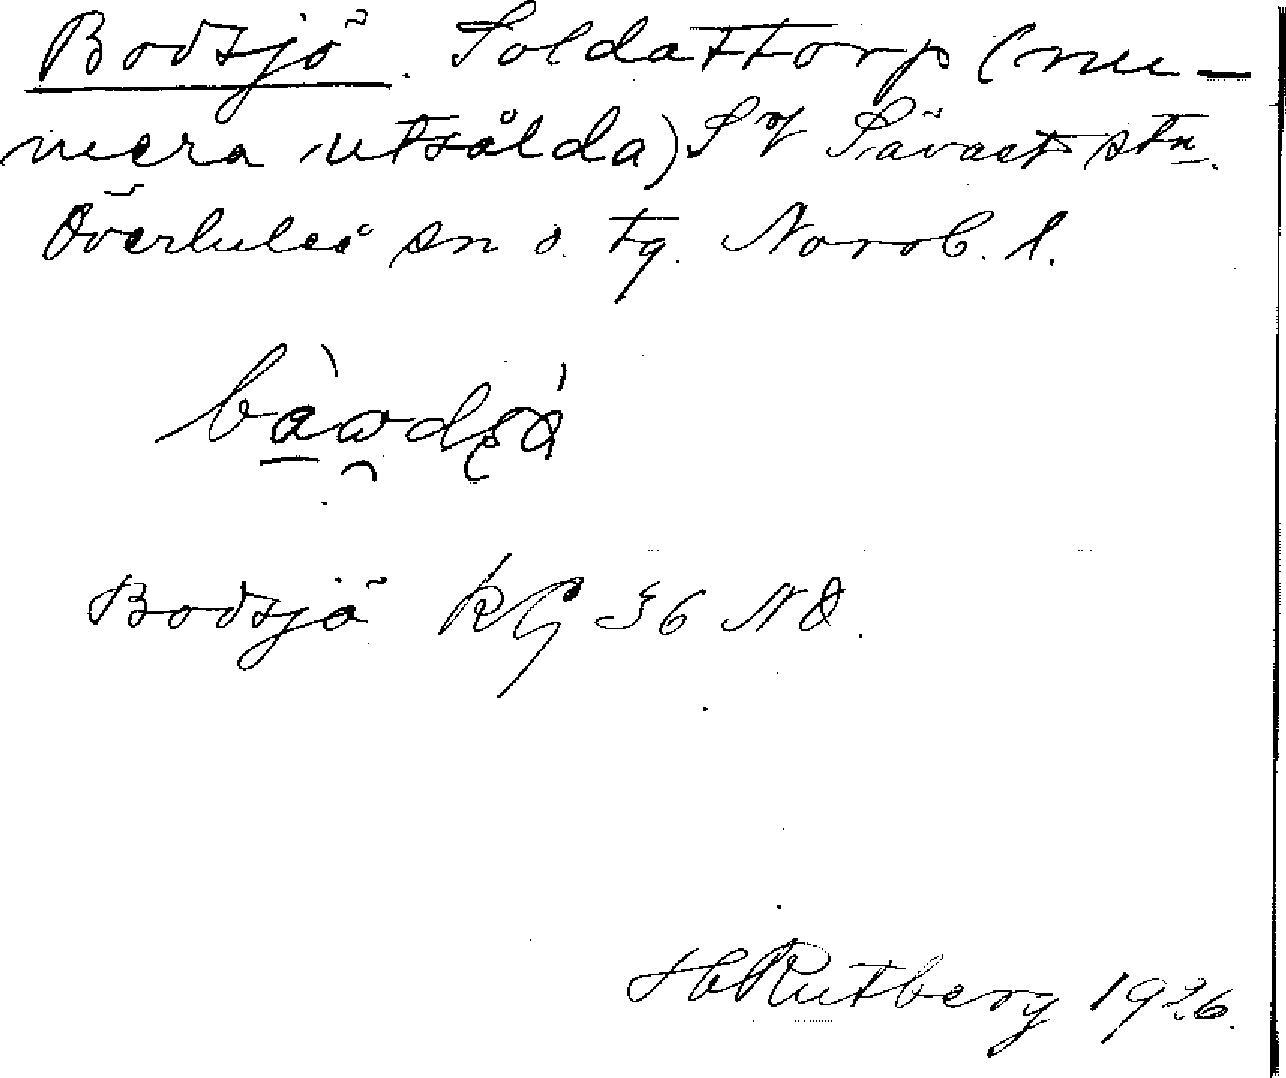 Bodsjö. Soldattorp (nu-
mera utsålda) S of Sävast stn.
Överluleå sn o. tg. Norrb. l.
Bodsjö KG 36 NO.
H Rutberg 1926.